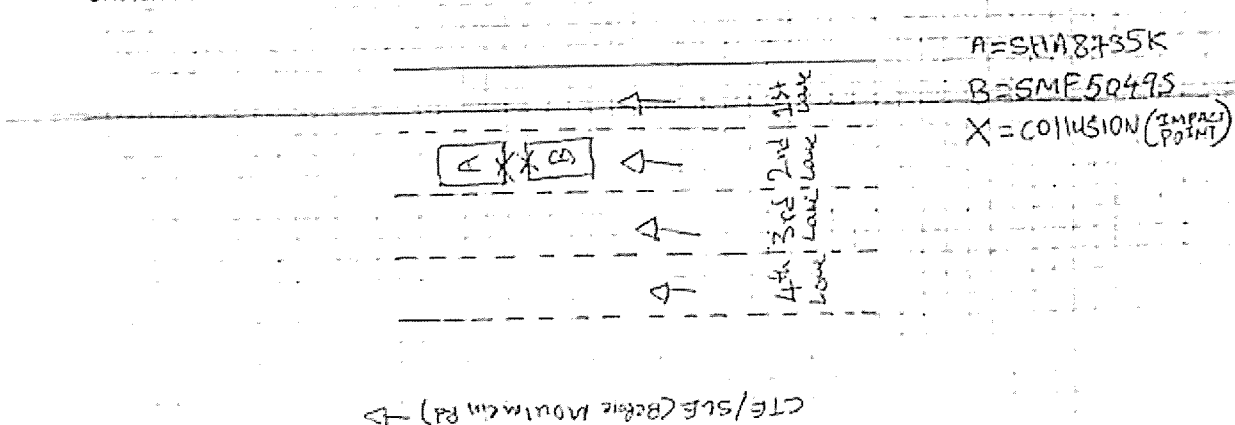 A=SHA8735K
B=SMF5049S
X = COllUSION (IMPACT POINT)
1st Lane
2nd Lane
3rd Lane
4th Lane
A X X B
CTE/SLE (Before Moulmein Rd)